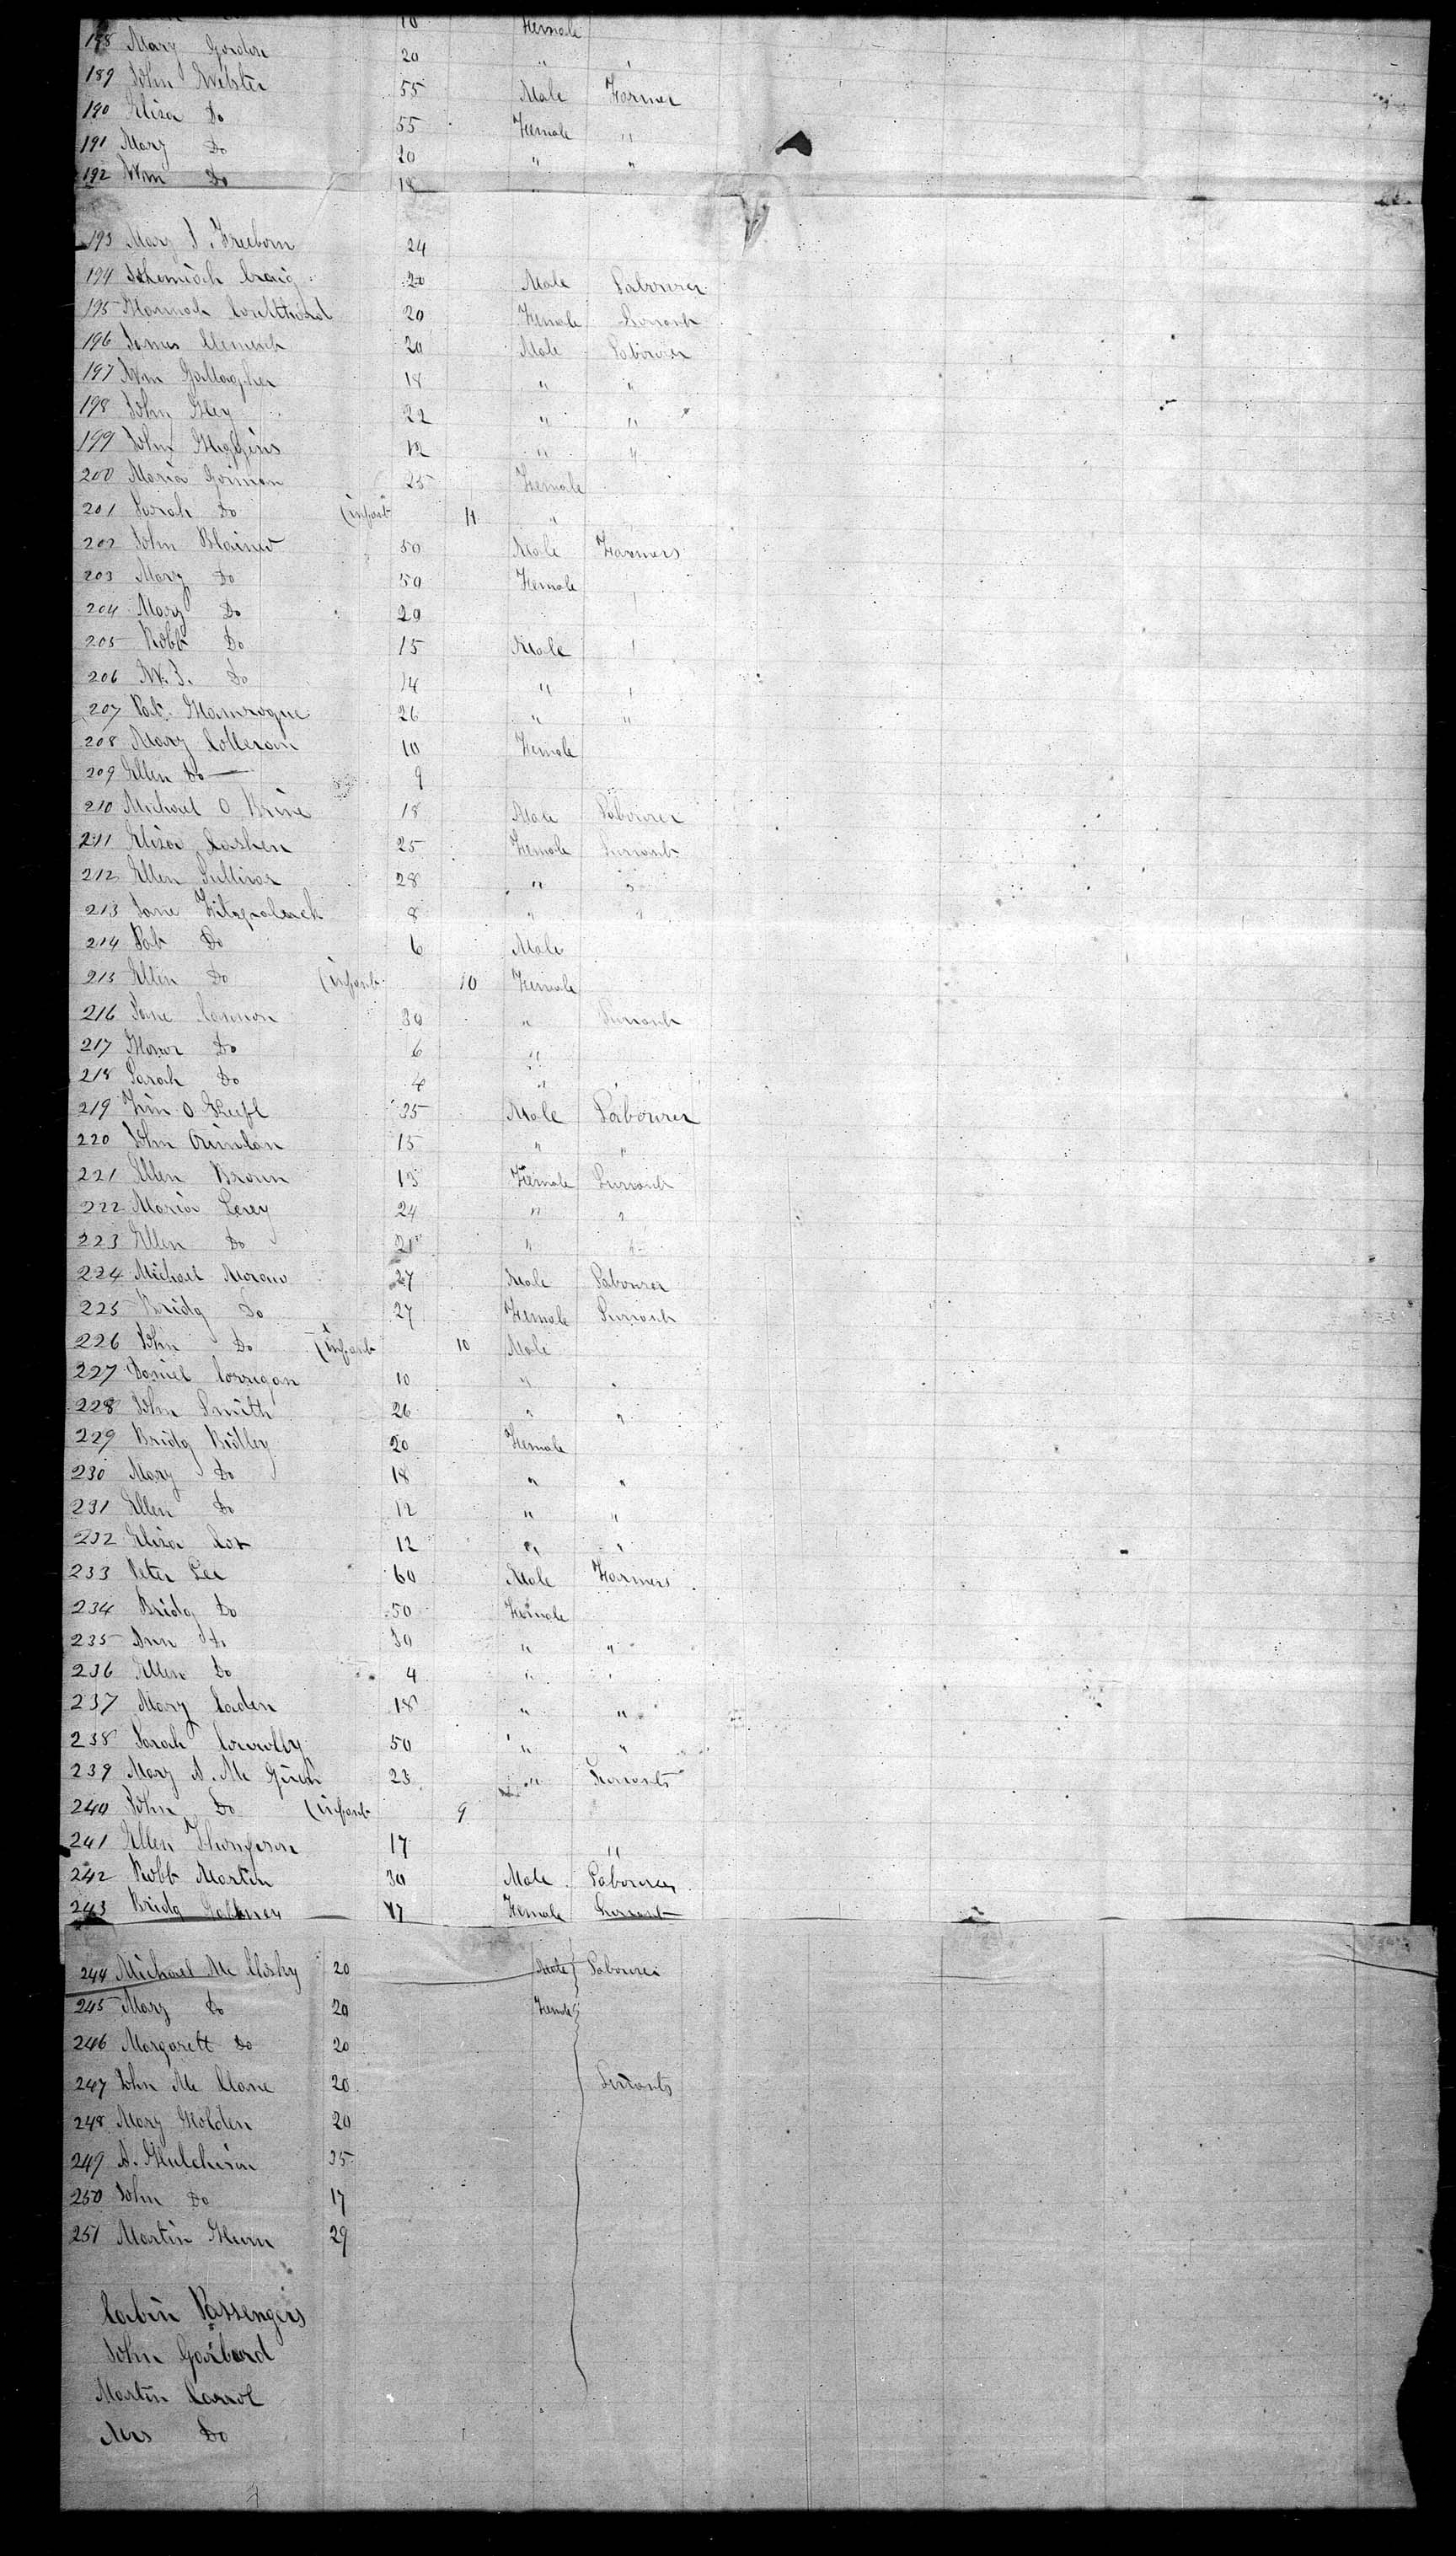 10 Female
188 Mary Gordon 20 "
189 John Webster 55 Male Farmer
190 Eliza Do 55 Female "
191 Mary Do 20 " "
192 Wm Do 18
193 Mary J. Freeborn 24
194 Craig 20 Male Labourer
195 Hannah 20 Female Servant
196 James 20 Male Labourer
197 Wm Gallagher 18 " "
198 John 22 " "
199 John Higgins 12 " "
200 Maria Gorman 25 Female
201 Sarah Do (infant 11 "
202 John 50 Male Farmers
203 Mary Do 50 Female
204 Mary Do 20
205 Robt Do 15 Male "
206 W. J. Do 14 " "
207 Pat. 26 " "
208 Mary 10 Female
209 Ellen Do — 9
210 Michael O Brine 18 Male Labourer
211 Eliza Cashen 25 Female Servant
212 Ellen Sullivan 28 " "
213 Jane Fitzpatrick 8 " "
214 Pat Do 6 Male
215 Ellen Do (infant 10 Female
216 Jane Cannon 30 " Servant
217 Do 6 "
218 Sarah Do 4 "
219 Tim O 35 Male Labourer
220 John 15 " "
221 Ellen Brown 13 Female Servant
222 Maria 24 " "
223 Ellen Do 21 " "
224 Michael Moran 27 Male Labourer
225 Bridg Do 27 Female Servant
226 John Do (infant 10 Male
227 Daniel Corrigan 10 "
228 John Smith 26 " "
229 Bridg 20 Female
230 Mary Do 18 " "
231 Ellen Do 12 " "
232 Eliza 12 " "
233 Peter Lee 60 Male Farmers
234 Bridg Do 50 Female
235 Ann Do 30 " "
236 Ellen Do 4 " "
237 Mary Caden 18 " "
238 Sarah Connolly 50 " "
239 Mary A. Mc 23 " Servants
240 John Do (infant 9
241 Ellen Thompson 17 "
242 Robt Martin 30 Male Labourer
243 Bridg 17 Female Servant
244 Michael Mc 20 Male Labourer
245 Mary Do 20 Female
246 Margarett Do 20
247 John Mc Clane 20 Servants
248 Mary Holden 20
249 A. Hutchison 35
250 John Do 17
251 Martin 29
Cabin Passengers
John
Martin Carrol
Mrs Do